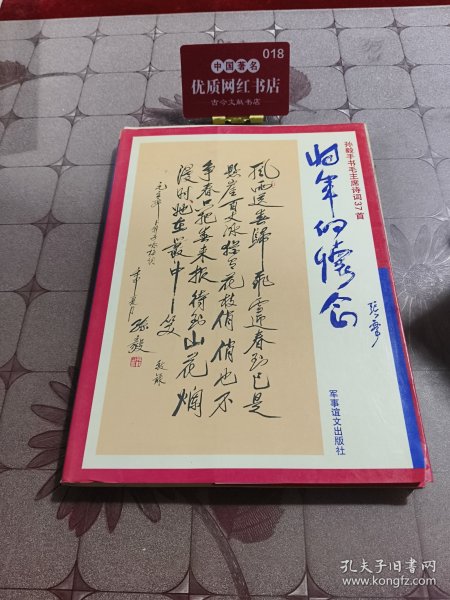 018
中国著名
优质网红书店
古今文献书店
孙毅手书毛主席诗词37首
将军的懷念
张震
風雨送春歸飛雪迎春到已是
悬崖百丈冰犹有花枝俏俏也不
争春只把春来报待到山花烂
漫时她在丛中笑
毛主席卜算子咏梅词
孙毅
敬录
军事谊文出版社
孔夫子旧书网
www.kongfz.com